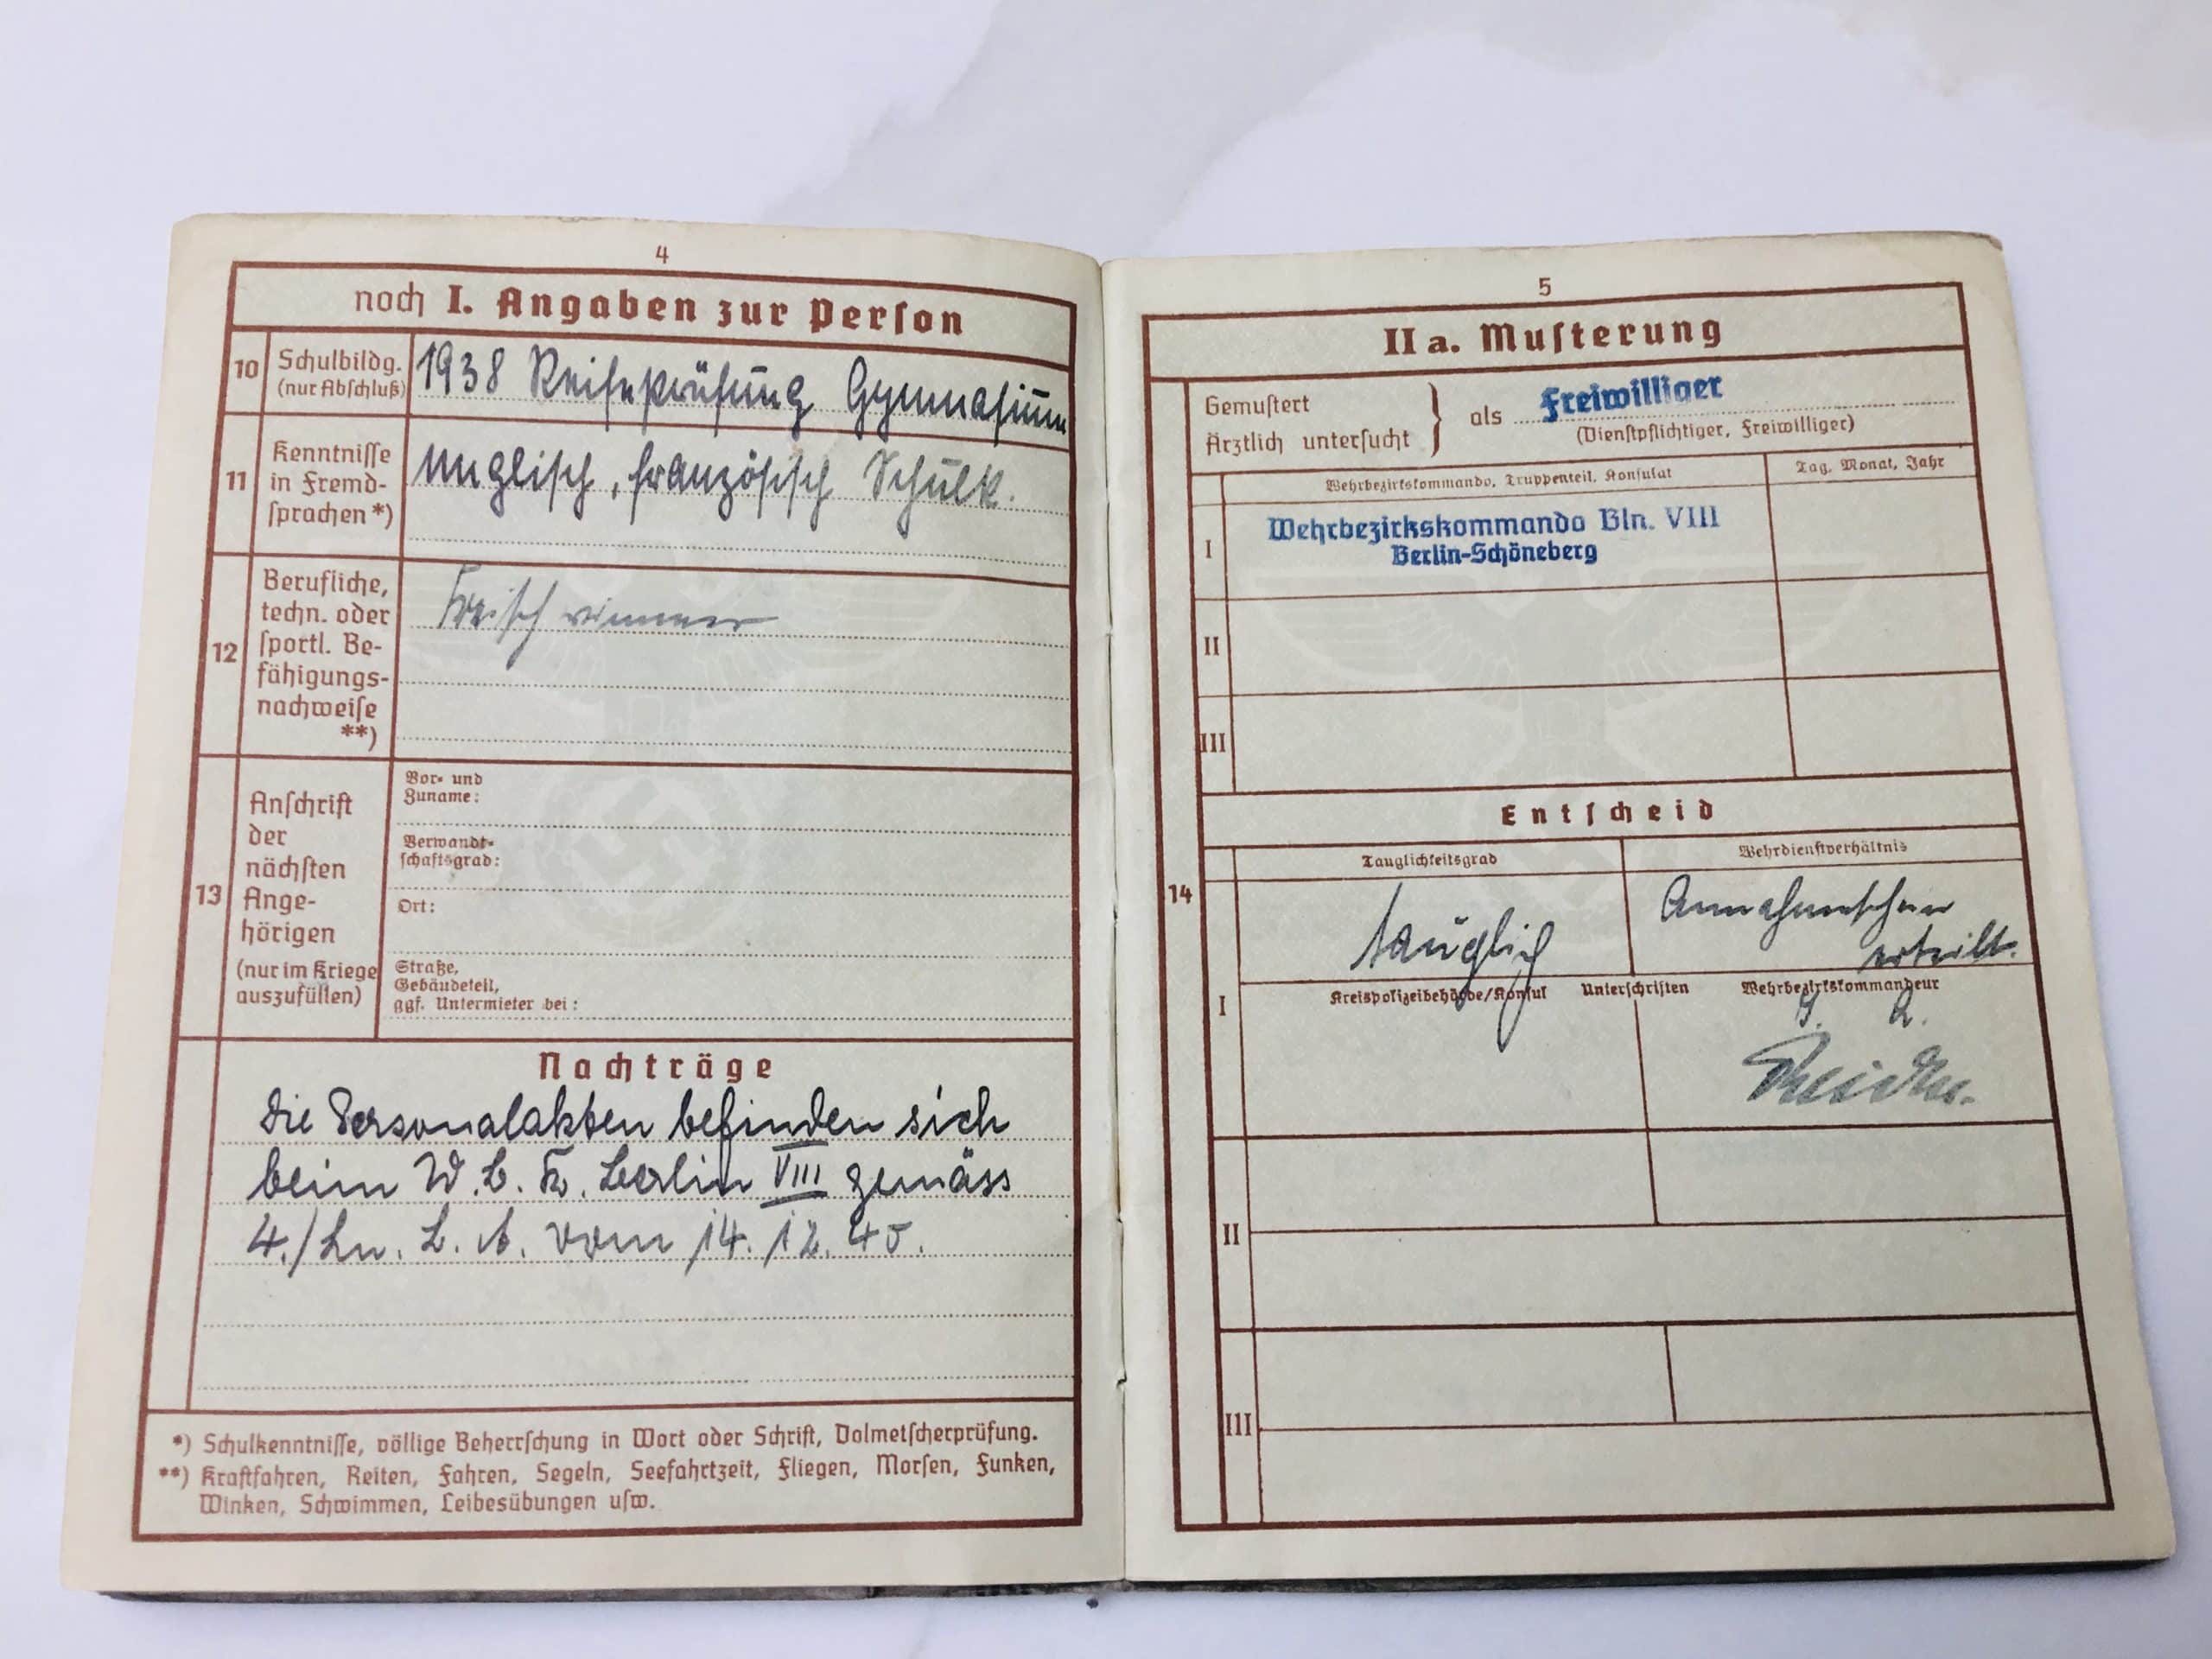 4
noch I. Angaben zur Person
10
Schulbildg.
(nur Abschluß)
1938 Reifeprüfung Gymnasium
11
Kenntnisse
in Fremd-
sprachen *)
Englisch, französisch Schulk.
12
Berufliche,
techn. oder
sportl. Be-
fähigungs-
nachweise
**)
13
Anschrift
der
nächsten
Ange-
hörigen
(nur im Kriege
auszufüllen)
Vor- und
Zuname:
Verwandt-
schaftsgrad:
Ort:
Straße,
Gebäudeteil,
ggf. Untermieter bei:
Nachträge
Die Personalakten befinden sich
beim W. B. K. Berlin VIII gemäss
4./Ln. vom 14. 12. 40.
*) Schulkenntnisse, völlige Beherrschung in Wort oder Schrift, Dolmetscherprüfung.
**) Kraftfahren, Reiten, Fahren, Segeln, Seefahrtzeit, Fliegen, Morsen, Funken,
Winken, Schwimmen, Leibesübungen usw.
5
II a. Musterung
Gemustert
Ärztlich untersucht
} als Freiwilliger
(Dienstpflichtiger, Freiwilliger)
Wehrbezirkskommando, Truppenteil, Konsulat
Tag, Monat, Jahr
I
Wehrbezirkskommando Bln. VIII
Berlin-Schöneberg
II
III
Entscheid
14
Tauglichkeitsgrad
Wehrdienstverhältnis
tauglich
Annahmeschein
erteilt.
I
Kreispolizeibehörde/Konsul
Unterschriften
Wehrbezirkskommandeur
II
III